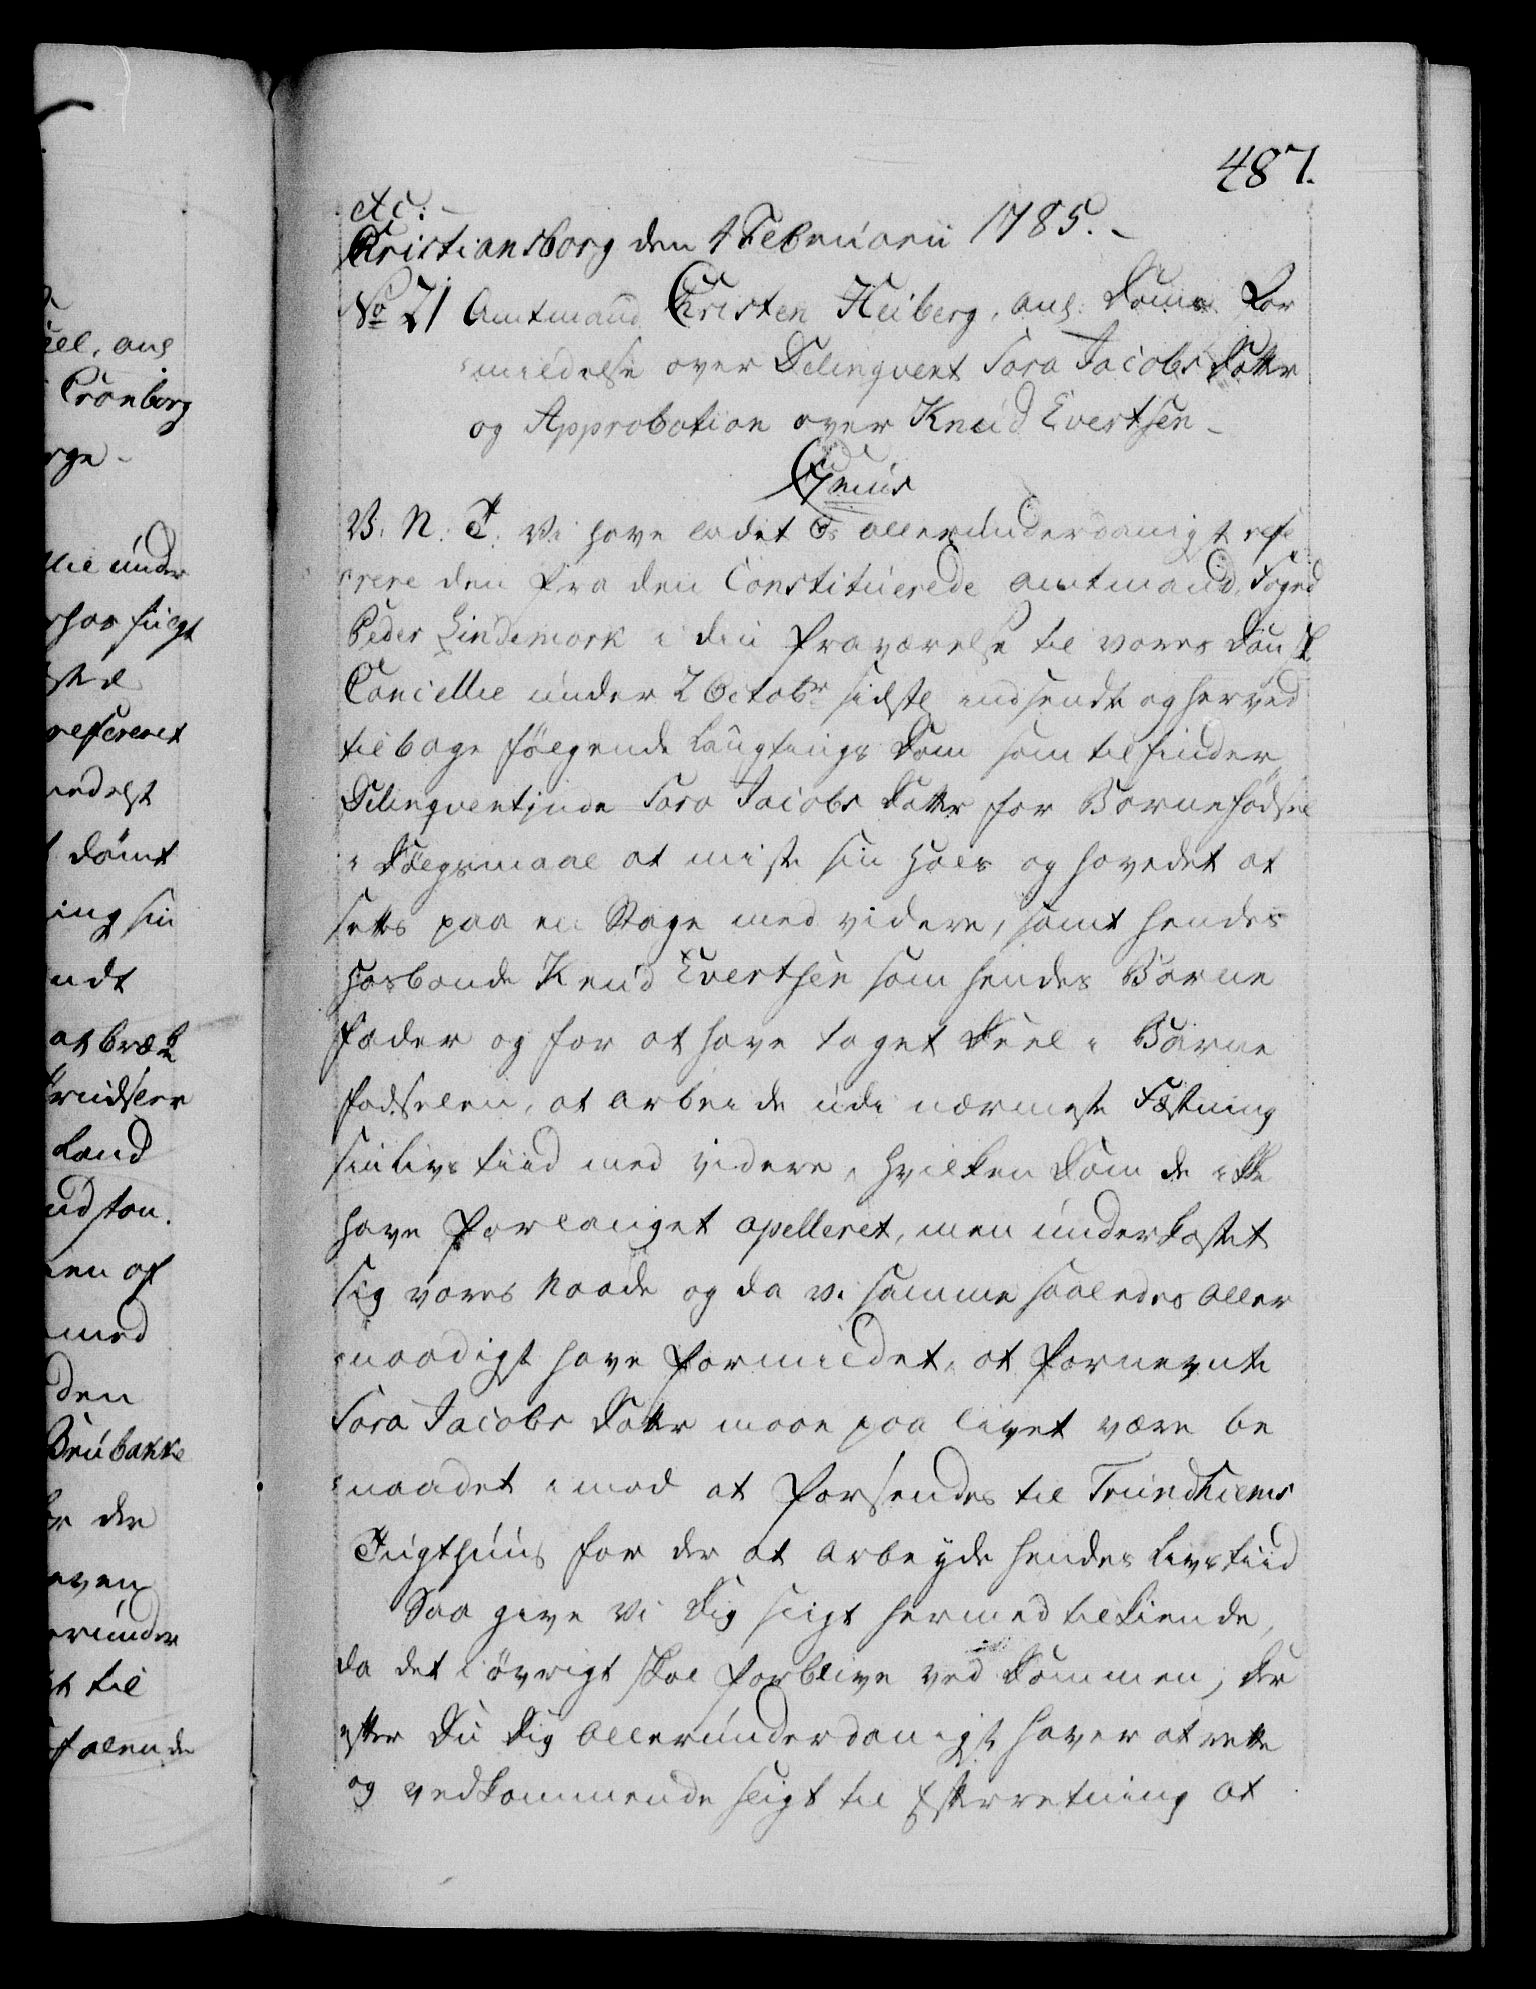 487.
etc:
Christiansborg den 4 Februarii 1785. -
No 21 Amtmand Christen Heiberg, ang: Doms For
mildelse over Delinqvent Sara Jacobs Datter
og Approbation over Knud Evertsen -
Chr: 7mus
V. N. T. Vi have ladet Os allerunderdanigst refe
rere den fra den Constituerede Amtmand, Foged
Peder Lindemark i din fraværelse til vores Dansk
Cancellie under 2 Octobr sidstl indsendte og herved
tilbage følgende Laugtings Dom som tilfinder
Delinqventinde Sara Jacobs Datter for Barnefødsel
i Dølgsmaal at miste sin Hals og hovedet at
settes paa en Stage med videre, samt hendes
Hosbonde Knud Evertsen som hendes Barne
fader og for at have taget Deel i Barne
fødselen, at arbeide udi nærmeste Fæstning
sin livs tiid med videre, hvilken Dom de ikke
have forlanget apelleret, men underkastet
sig vores Naade og da vi samme saaledes aller
naadigst have formildet, at fornevnte
Sara Jacobs Datter maae paa livet være be
naadet imod at forsendes til Trundhiems
Tugthuus for der at arbeyde hendes livstiid
Saa give Vi Dig sligt hermed tilkiende,
da det i øvrigt skal forblive ved Dommen, der
efter Du Dig allerunderdanigst haver at rette
og vedkommende sligt til Efterretning at
iel, ang
Cronborg
rge -
llie under
rhos fulgt
refereret
medelst
dømt
ing sin
ndt
at bræk
Land
en af
med
den
Brubakke
er der
erunder
til
falende